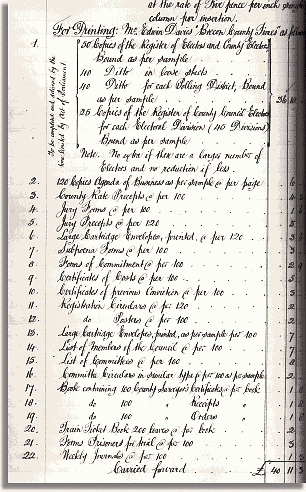 at the rate of Five pence per inch
column per insertion.
For Printing: Mr. Edwin Davies "Brecon County Times" as follows
1. 50 Copies of the Register of Electors and County Electors
Bound as per sample
40 Ditto in loose sheets
40 Ditto for each Polling District, Bound
as per sample
25 Copies of the Register of County Council Electors
for each Electoral Division (40 Divisions)
Bound as per sample
Note. No extra if there are a larger number of
Electors and no reduction if less.
To be completed and delivered by the
time limited by Act of Parliament
2. 120 Copies Agenda of Business as per sample @ per page 6
3. County Rate Precepts @ per 100 4
4. Jury Forms @ per 100 1
5. Jury Precepts @ per 120 5
6. Large Cartridge Envelopes, printed, @ per 120 3
7. Subpoena Forms @ per 100
8. Forms of Commitment @ per 100 2
9. Certificates of Costs @ per 100
10. Certificates of previous Conviction @ per 100
11. Registration Circulars @ per 120 2
12. do Posters @ per 100
13. Large Cartridge Envelopes, printed, as per sample per 100 7
14. List of Members of the Council @ per 100 7
15. List of Committees @ per 100
16. Committee Circulars in similar type @ per 100 as per sample 2
17. Book containing 100 County Surveyors Certificates, per book 1
18. do 100 Receipts 1
19. do 100 Orders 1
20. Train Ticket Book 200 leaves @ per book 2
21. Forms Prisoners for trial @ per 100 3
22. Weekly Journals @ per 100 1
Carried forward £ 40 11 3